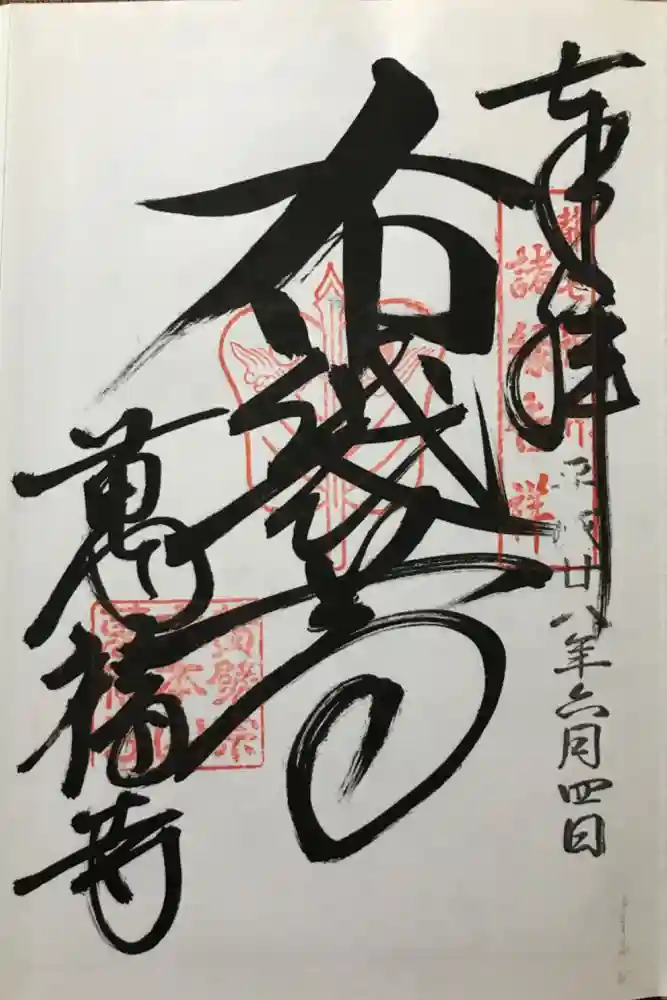 奉拝
平成廿八年六月四日
諸縁吉祥
布袋尊
萬福寺
黄檗宗
大本山
萬福寺